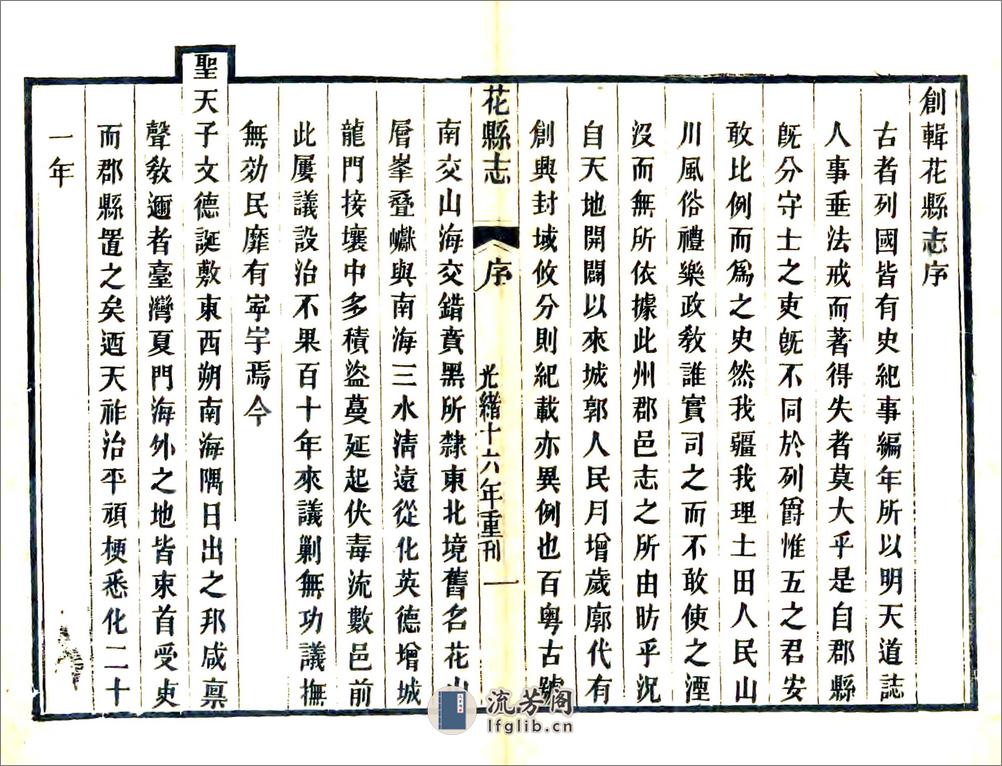 創輯花縣志序
古者列國皆有史紀事編年所以明天道誌
人事垂法戒而著得失者莫大乎是自郡縣
旣分守土之吏旣不同於列爵惟五之君安
敢比例而爲之史然我疆我理土田人民山
川風俗禮樂政敎誰實司之而不敢使之湮
沒而無所依據此州郡邑志之所由昉乎況
自天地開闢以來城郭人民月增歲廓代有
創興封域攸分則紀載亦異例也百粵古號
花縣志 序 光緒十六年重刊 一
南交山海交錯賁黑所隸東北境舊名花山
層峯疊巘與南海三水淸遠從化英德增城
龍門接壤中多積盜蔓延起伏毒流數邑前
此屢議設治不果百十年來議剿無功議撫
無効民靡有寧宇焉今
聖天子文德誕敷東西朔南海隅日出之邦咸稟
聲敎邇者臺灣夏門海外之地皆束首受吏
而郡縣置之矣迺天祚治平頑梗悉化二十
一年
流芳阁
lfglib.cn